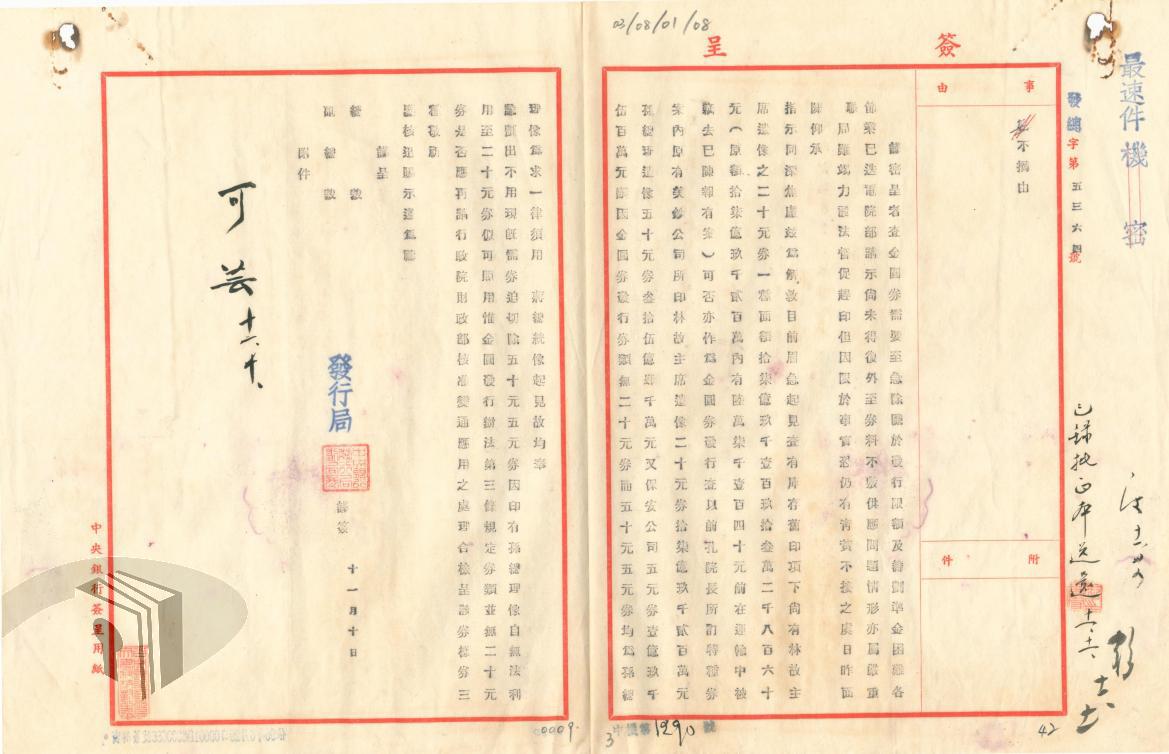 03/08/01/08
簽
呈
最速件
機密
發總字第五三六四號
事由
不摘由
附件
謹密呈者查金圓券需要至急除關於發行限額及籌劃準金困難各
節業已迭電院部請示尚未得復外至券料不敷供應問題情形亦屬嚴重
職局雖竭力設法督促趕印但因限於事實恐仍有青黃不接之虞日昨面
陳仰承
指示同深焦慮茲為解救目前周急起見查有庫存舊印項下尚有林故主
席遺像之二十元券一種面額拾柒億玖千壹百玖拾叁萬二千八百六十
元(原額拾柒億玖千貳百萬內有陸萬柒千壹百四十元前在運輸中被
竊去已陳報有案)可否亦作為金圓券發行查以前孔院長所訂特種券
案內原有美鈔公司所印林故主席遺像二十元券拾柒億玖千貳百萬元
孫總理遺像五十元券叁拾伍億 千萬元又保安公司五元券壹億玖千
伍百萬元 因金圓券發行券類無二十元券而五十元五元券均為孫總
理像為求一律須用 蔣總統像起見故均奉
諭剔出不用現既需券迫切除五十元五元券因印有孫總理像自無法利
用至二十元券似可即用惟金圓發行辦法第三條規定券類並無二十元
券是否應再請行政院財政部核准變通應用之處理合檢呈該券樣券三
種敬祈
鑒核迅賜示遵為禱
謹呈
總裁
副總裁
附件
發行局
謹簽
十一月十日
可 芸 十一、十、
中央銀行簽呈用紙
已錄批正本送還 十一、十一、
中機第1290號
0009
3
42